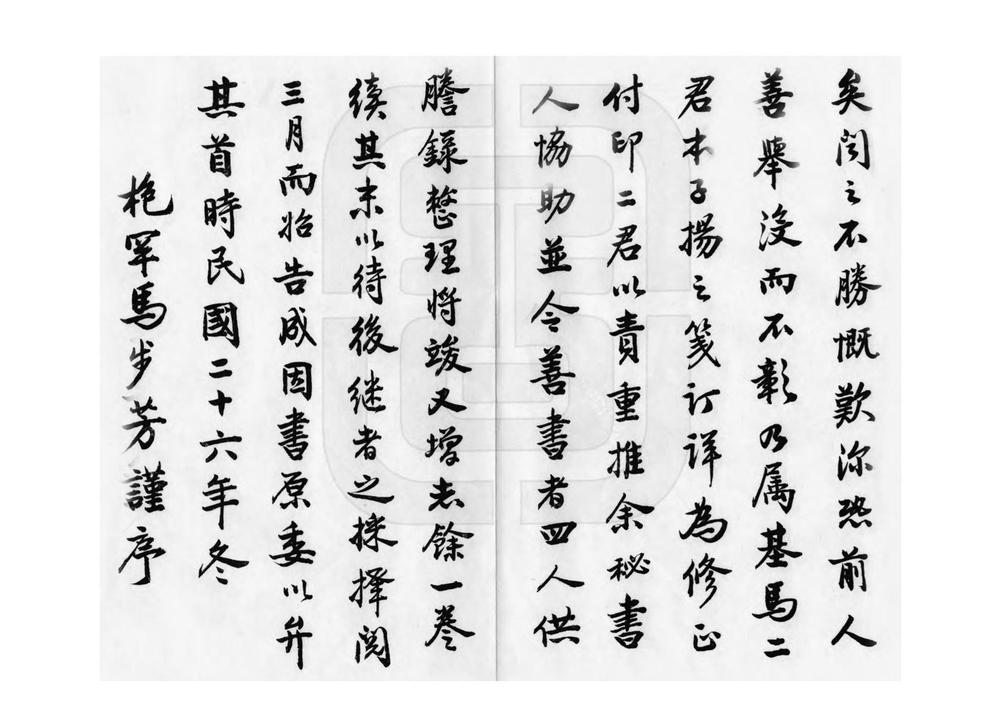 矣闻之不勝慨歎深恐前人
善舉沒而不彰乃属基馬二
君本子揚之箋訂詳為修正
付印二君以責重推余秘書
人協助並令善書者四人供
謄錄整理將竣又增志餘一卷
續其末以待後继者之採擇閱
三月而始告成因書原委以弁
其首時民國二十六年冬
枹罕馬步芳謹序